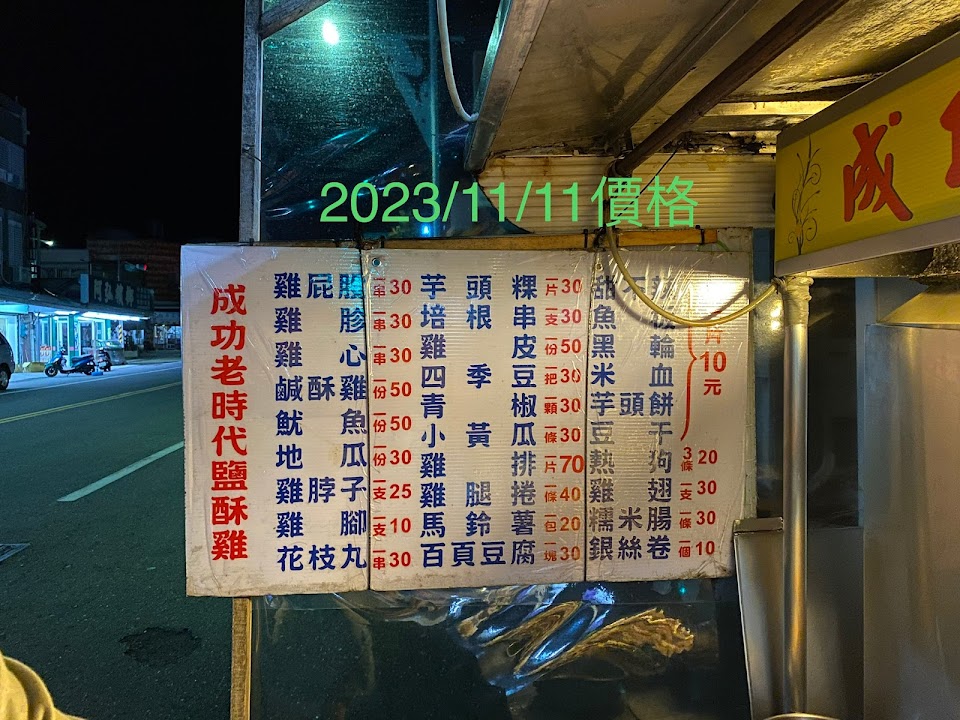 2023/11/11價格
成
成功老時代鹽酥雞
雞屁 一串30
雞胗 一串30
雞心 一串30
鹹酥雞 一份50
魷魚 一份50
地瓜 一份30
雞脖子 一支25
雞腳 一支10
花枝丸 一串30
芋頭粿 一片30
培根串 一支30
雞皮 一份50
四季豆 一把30
青椒 一顆30
小黃瓜 一條30
雞排 一片70
雞腿捲 一條40
馬鈴薯 一包20
百頁豆腐 一塊30
甜不
魚
黑輪
米血
芋頭餅
豆干
片10元
熱狗 3條20
雞翅 一支30
糯米腸 一條30
銀絲卷 一個10